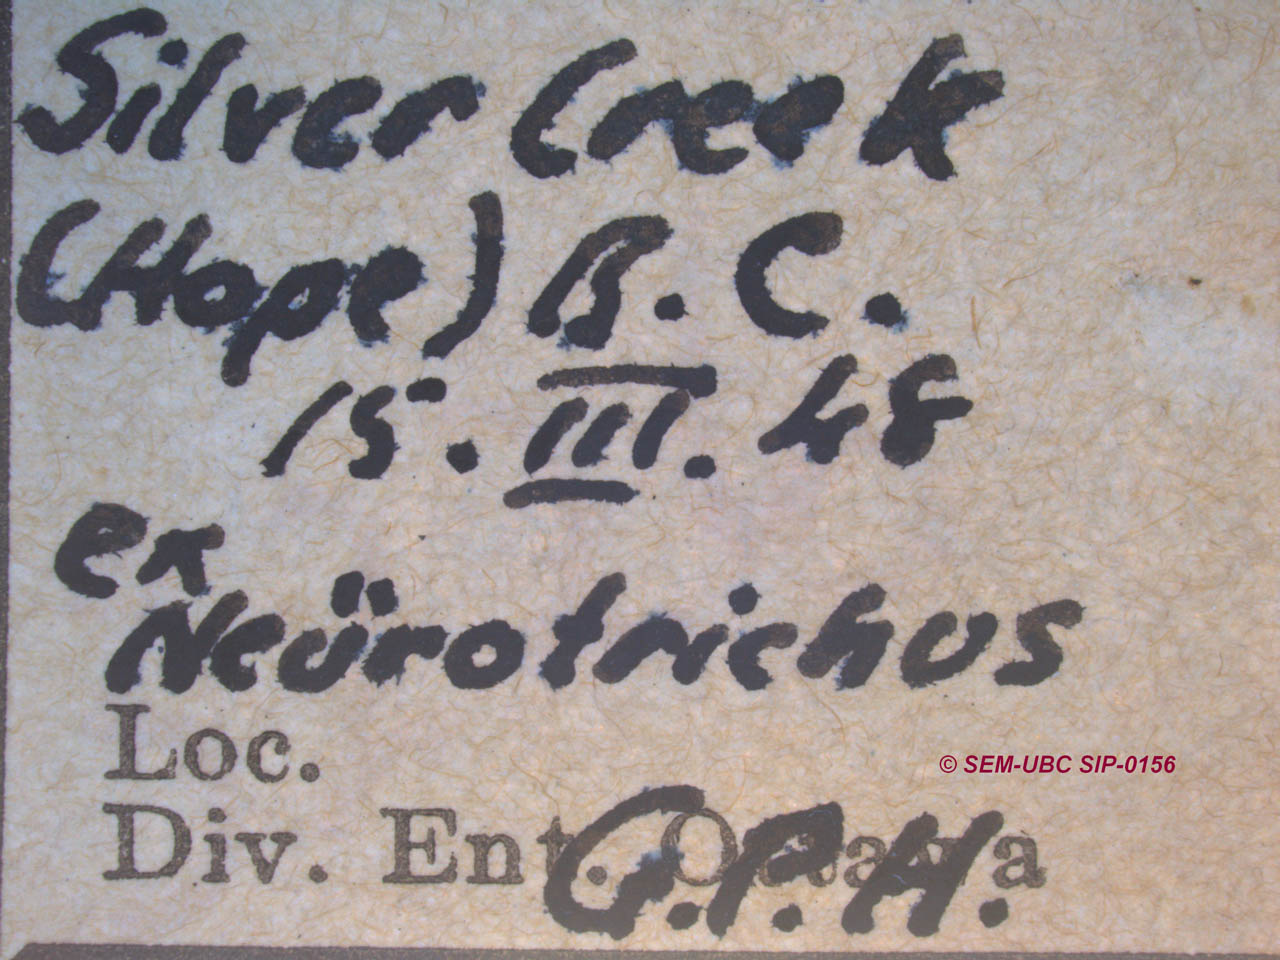 Silver Creek
(Hope) B. C.
15. III. 48
ex
Neürotrichus
Loc.
Div. Ent. Ottawa
G.P.H.
© SEM-UBC SIP-0156